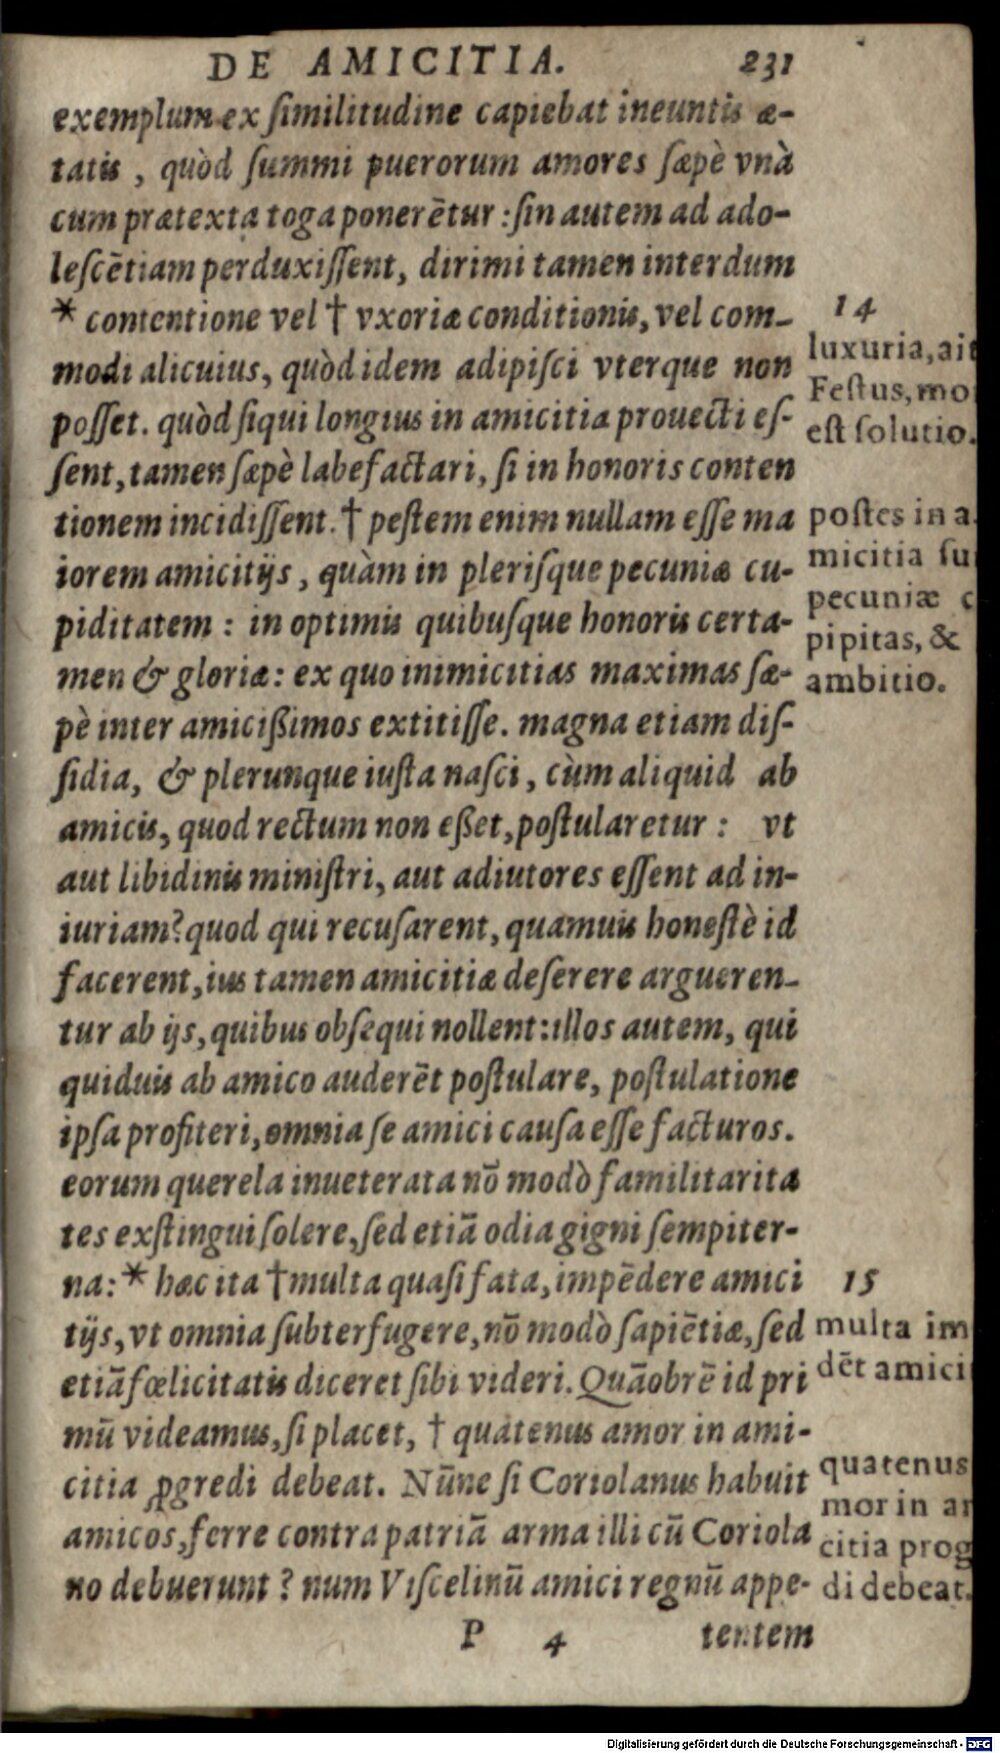 DE AMICITIA. 231
exemplum ex ſimilitudine capiebat ineuntis æ-
tatis, quòd ſummi puerorum amores ſæpè vnà
cum prætexta toga ponerētur: ſin autem ad ado-
leſcētiam perduxiſſent, dirimi tamen interdum
* contentione vel † vxoriæ conditionis, vel com-
modi alicuius, quòd idem adipiſci vterque non
poſſet. quòd ſiqui longius in amicitia prouecti eſ-
ſent, tamen ſæpè labefactari, ſi in honoris conten
tionem incidiſſent. † peſtem enim nullam eſſe ma
iorem amicitijs, quàm in pleriſque pecuniæ cu-
piditatem: in optimis quibuſque honoris certa-
men & gloriæ: ex quo inimicitias maximas ſæ-
pè inter amicißimos extitiſſe. magna etiam diſ-
ſidia, & plerunque iuſta naſci, cùm aliquid ab
amicis, quod rectum non eßet, poſtularetur: vt
aut libidinis miniſtri, aut adiutores eſſent ad in-
iuriam? quod qui recuſarent, quamuis honeſtè id
facerent, ius tamen amicitiæ deſerere argueren-
tur ab ijs, quibus obſequi nollent: illos autem, qui
quiduis ab amico auderēt poſtulare, poſtulatione
ipſa profiteri, omnia ſe amici cauſa eſſe facturos.
eorum querela inueterata nō modò familitarita
tes exſtingui ſolere, ſed etiā odia gigni ſempiter-
na: * hæc ita † multa quaſi fata, impēdere amici
tijs, vt omnia ſubterfugere, nō modò ſapiētiæ, ſed
etiā fœlicitatis diceret ſibi videri. Quāobrē id pri
mū videamus, ſi placet, † quatenus amor in ami-
citia ꝓgredi debeat. Nūne ſi Coriolanus habuit
amicos, ferre contra patriā arma illi cū Coriola
no debuerunt? num Viſcelinū amici regnū appe-
P 4 tentem
14
luxuria, ait
Feſtus, mo
eſt ſolutio.
poſtes in a
micitia ſu
pecuniæ c
pipitas, &
ambitio.
15
multa im
dēt amici
quatenus
mor in am
citia prog
di debeat.
Digitalisierung gefördert durch die Deutsche Forschungsgemeinschaft - DFG